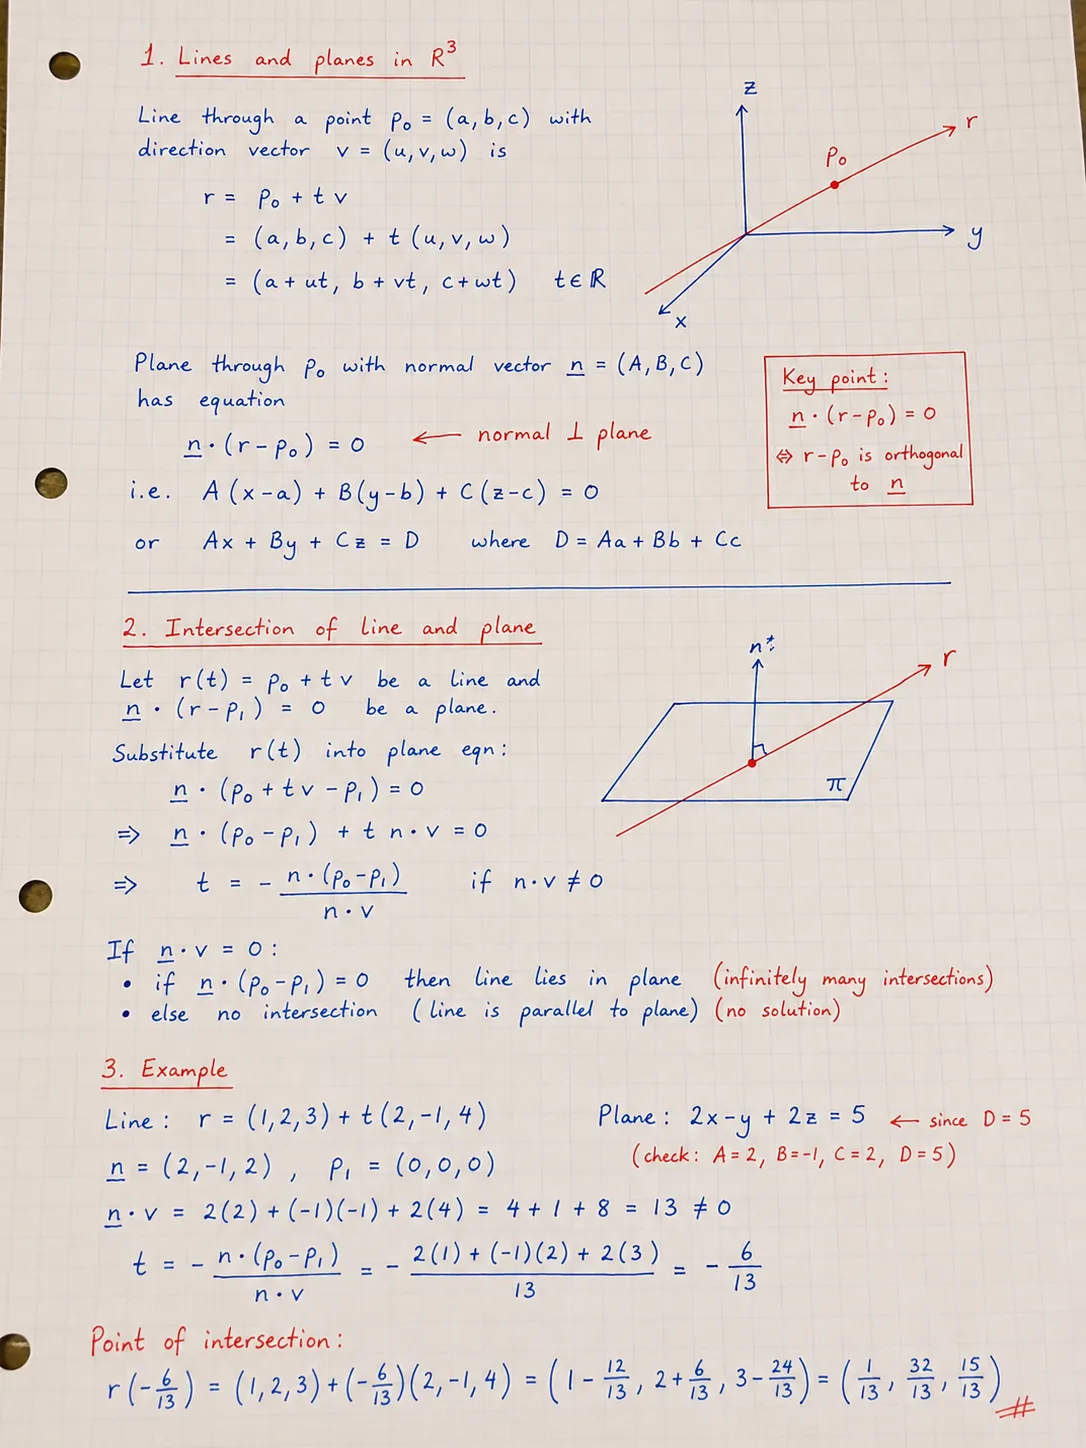 1. Lines and planes in R³
Line through a point p₀ = (a, b, c) with
direction vector v = (u, v, w) is
r = p₀ + t v
= (a, b, c) + t (u, v, w)
= (a + ut, b + vt, c + wt) t ∈ ℝ
z
r
p₀
y
x
Plane through p₀ with normal vector n = (A, B, C)
has equation
n · (r - p₀) = 0 ← normal ⊥ plane
i.e. A (x - a) + B(y - b) + C (z - c) = 0
or Ax + By + Cz = D where D = Aa + Bb + Cc
Key point:
n · (r - p₀) = 0
⇔ r - p₀ is orthogonal
to n
2. Intersection of line and plane
Let r(t) = p₀ + t v be a line and
n · (r - p₁) = 0 be a plane.
Substitute r(t) into plane eqn:
n · (p₀ + t v - p₁) = 0
⇒ n · (p₀ - p₁) + t n · v = 0
⇒ t = - n · (p₀ - p₁) / n · v if n · v ≠ 0
n
r
π
If n · v = 0:
• if n · (p₀ - p₁) = 0 then line lies in plane (infinitely many intersections)
• else no intersection (line is parallel to plane) (no solution)
3. Example
Line: r = (1, 2, 3) + t (2, -1, 4) Plane: 2x - y + 2z = 5 ← since D = 5
n = (2, -1, 2) , p₁ = (0, 0, 0) (check: A = 2, B = -1, C = 2, D = 5)
n · v = 2(2) + (-1)(-1) + 2(4) = 4 + 1 + 8 = 13 ≠ 0
t = - n · (p₀ - p₁) / n · v = - 2(1) + (-1)(2) + 2(3) / 13 = - 6/13
Point of intersection:
r(-6/13) = (1, 2, 3) + (-6/13)(2, -1, 4) = (1 - 12/13, 2 + 6/13, 3 - 24/13) = (1/13, 32/13, 15/13)